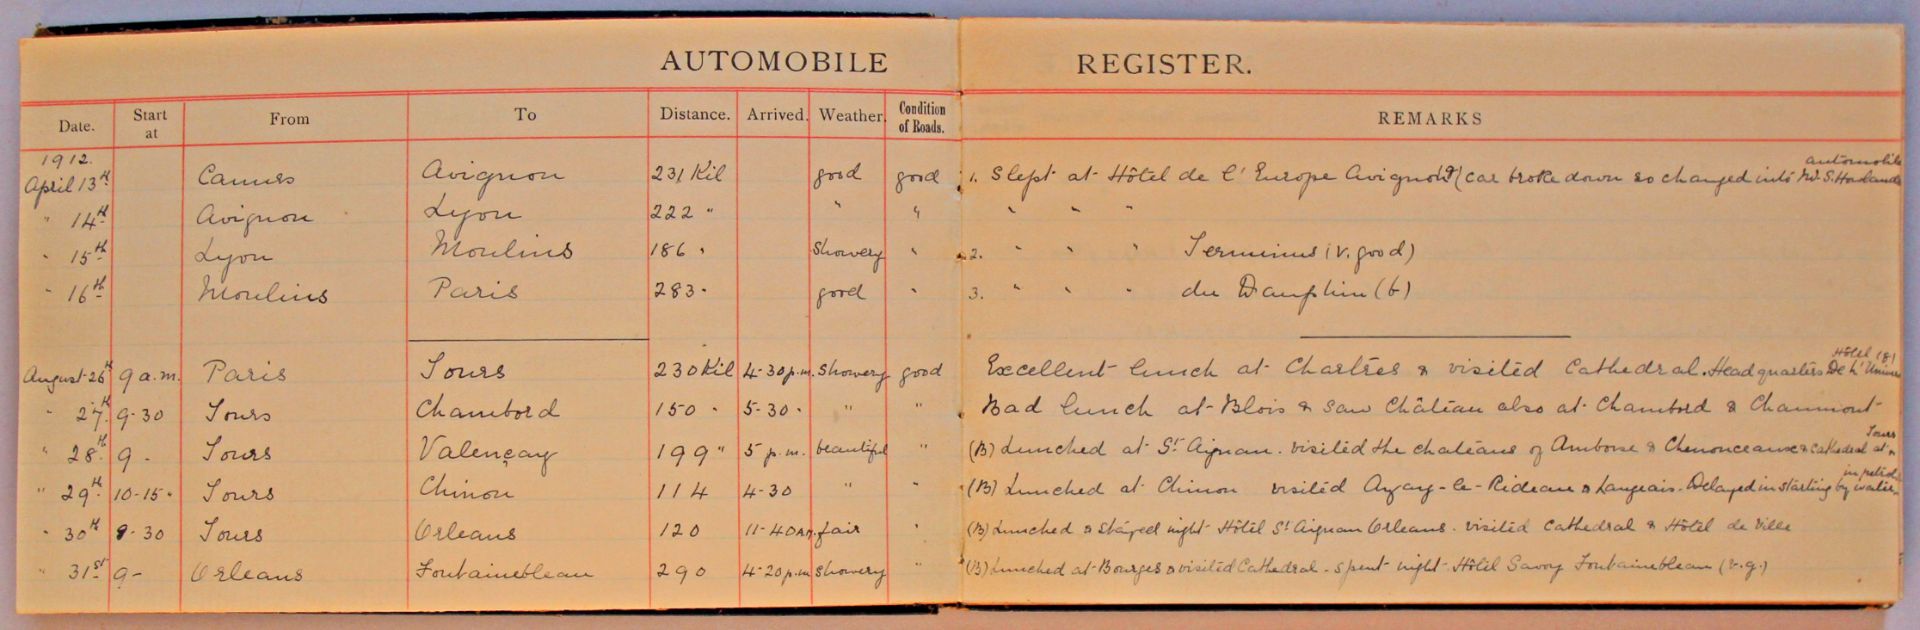 AUTOMOBILE REGISTER.
Date. Start at From To Distance. Arrived. Weather. Condition of Roads. REMARKS
1912.
automobile
April 13th Cannes Avignon 231 Kil good good 1. Slept at Hôtel de l'Europe Avignon (car broke down so changed into Mr. S.
" 14th Avignon Lyon 222 " " " " " "
" 15th Lyon Moulins 186 " Showery " 2. " " " Terminus (v. good)
" 16th Moulins Paris 283 " good " 3. " " " du Dauphin (b)
Hôtel
August 26th 9 a.m. Paris Tours 230 Kil 4-30 p.m. Showery good Excellent lunch at Chartres & visited Cathedral. Headquarters De L'Univers
" 27th 9-30 Tours Chambord 150 " 5-30 " " " Bad lunch at Blois & saw Château also at Chambord & Chaumont
Tours
" 28th 9 - Tours Valençay 199 " 5 p.m. beautiful " (B) Lunched at St. Aignan. visited the chateaus of Amboise & Chenonceaux & Cathedral at
in petrol
" 29th 10-15 " Tours Chinon 114 4-30 " " (B) Lunched at Chinon visited Azay-le-Rideau & Langeais. Delayed in starting by water
" 30th 9-30 Tours Orleans 120 11-40 a.m. fair " (B) Lunched & stayed night Hôtel St Aignan Orleans. visited Cathedral & Hôtel de Ville
" 31st 9 - Orleans Fontainebleau 290 4-20 p.m. showery " (B) Lunched at Bourges & visited Cathedral. spent night Hôtel Savoy Fontainebleau (v.g.)